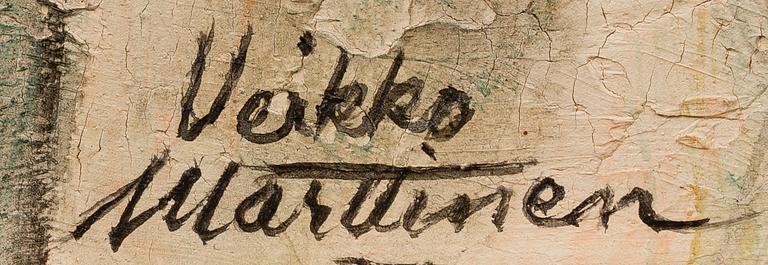 Veikko
Marttinen